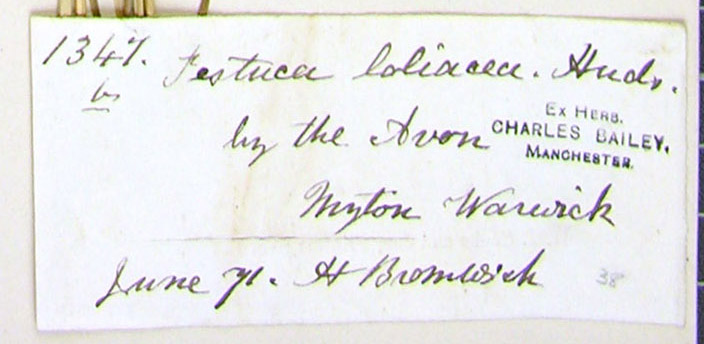 1347. Festuca loliacea. Huds.
b
by the Avon
Ex Herb.
CHARLES BAILEY,
MANCHESTER.
Myton Warwick
June 71. H Bromwich
38